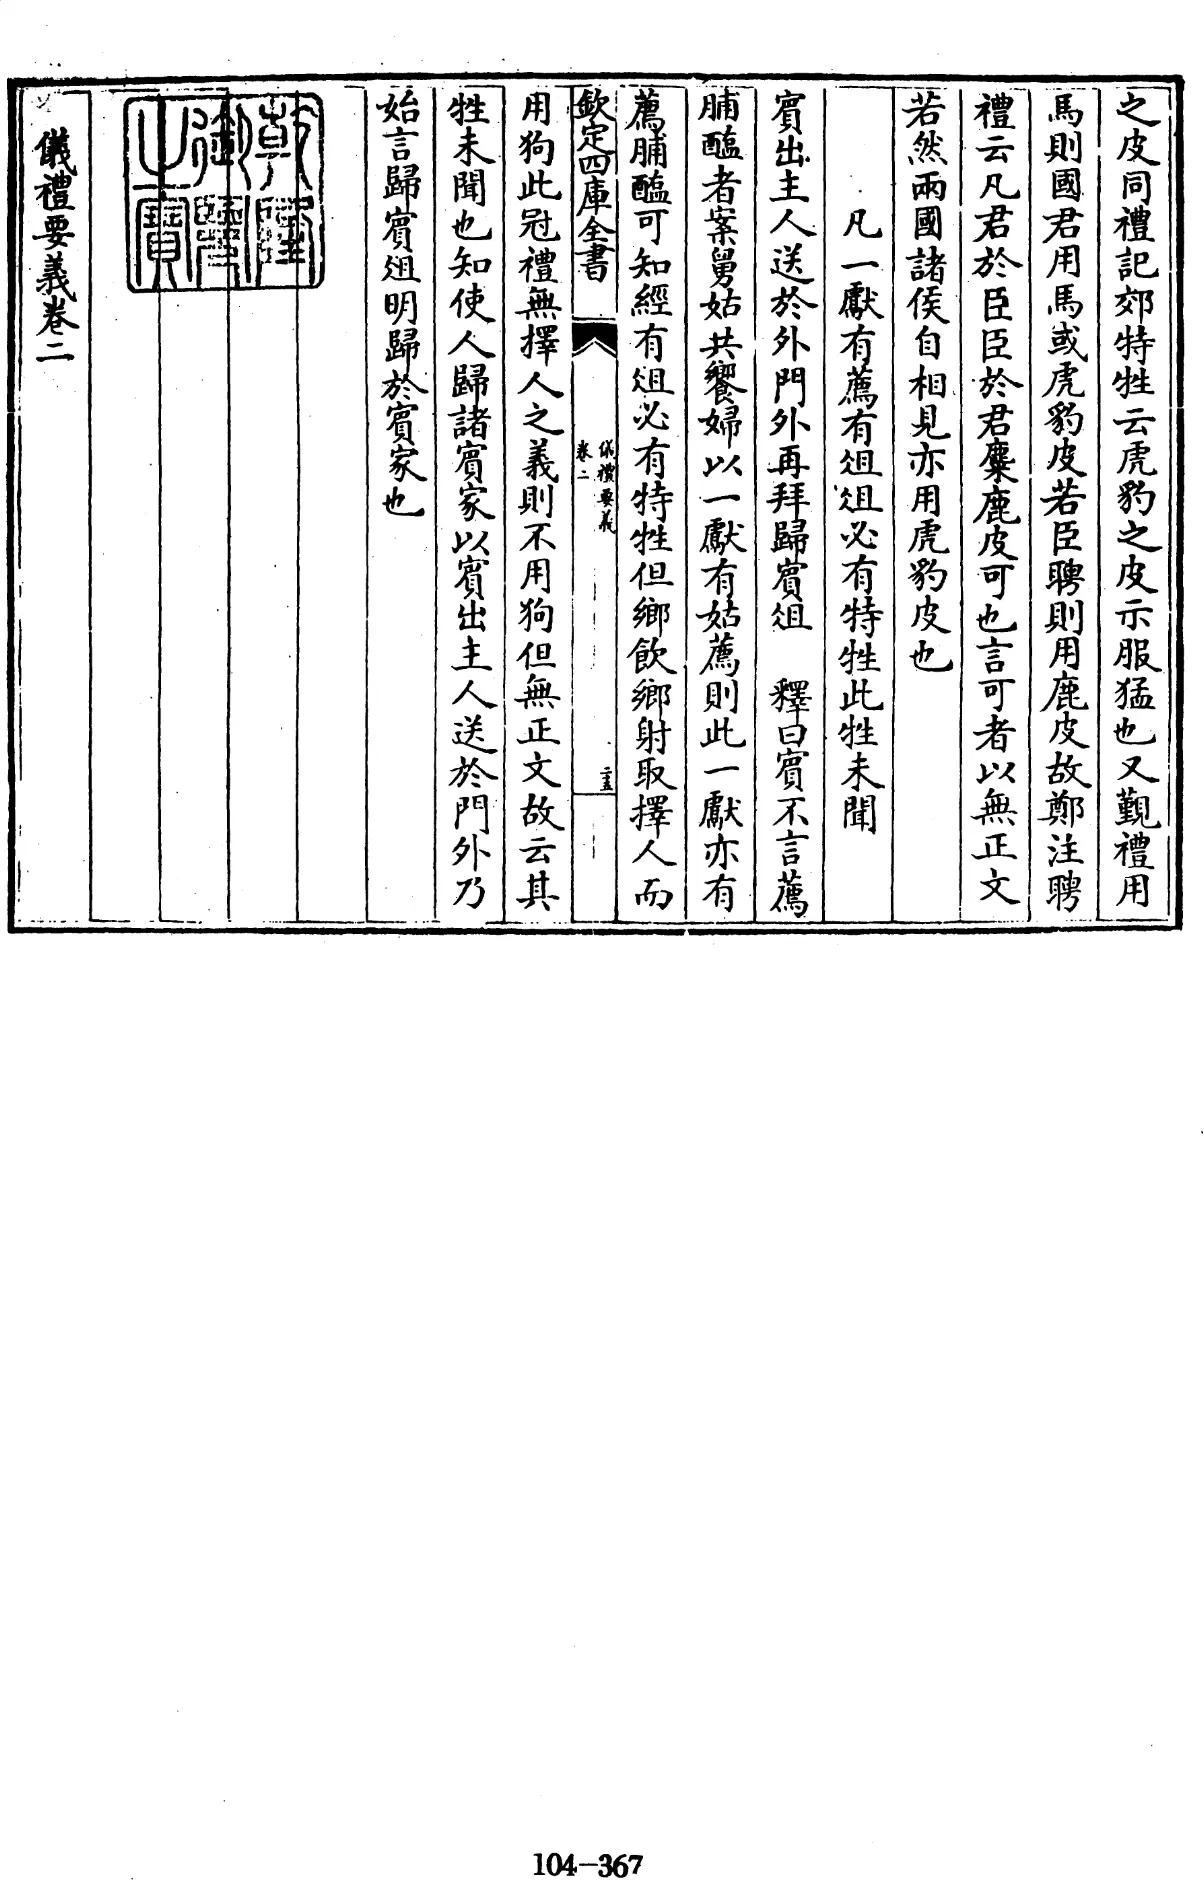 之皮同禮記郊特牲云虎豹之皮示服猛也又覲禮用
馬則國君用馬或虎豹皮若臣聘則用鹿皮故鄭注聘
禮云凡君於臣臣於君麋鹿皮可也言可者以無正文
若然兩國諸侯自相見亦用虎豹皮也
凡一獻有薦有俎俎必有特牲此牲未聞
賓出主人送於外門外再拜歸賓俎　釋曰賓不言薦
脯醢者案舅姑共饗婦以一獻有姑薦則此一獻亦有
薦脯醢可知經有俎必有特牲但鄉飲鄉射取擇人而
欽定四庫全書
儀禮要義
卷二
二十五
用狗此冠禮無擇人之義則不用狗但無正文故云其
牲未聞也知使人歸諸賓家以賓出主人送於門外乃
始言歸賓俎明歸於賓家也
乾隆御覽之寶
儀禮要義卷二
104-367